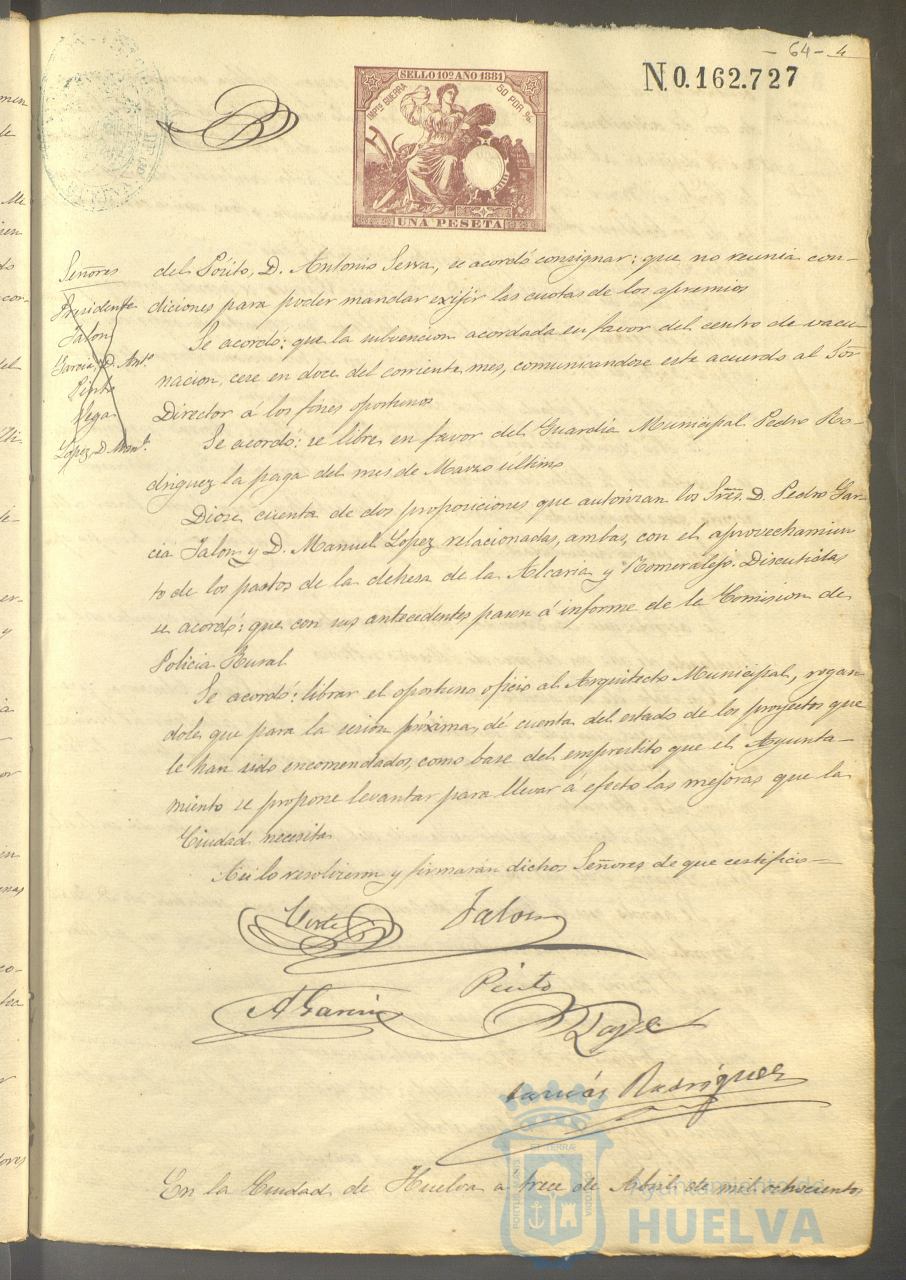 - 64 - 4
N.0.162.727
SELLO 10º AÑO 1881
IMPTO GUERRA
50 POR %
UNA PESETA
Señores
Presidente
Jalon
Garcia, D. Antº
Pinto
Vega
Lopez, D. Manl.
del Pósito, D. Antonio Serra, se acordó consignar: que no reunia con-
diciones para poder mandar exijir las cuotas de los apremios
Se acordó: que la subvencion acordada en favor del centro de vacu-
nacion, cese en doce del corriente mes, comunicandose este acuerdo al Sor
Director á los fines oportunos
Se acordó: se libre en favor del Guardia Municipal Pedro Ro-
driguez la paga del mes de Marzo ultimo
Diose cuenta de dos proposiciones que autorizan los Sres. D. Pedro Gar-
cia Jalon y D. Manuel Lopez relacionadas, ambas, con el aprovechamien-
to de los pastos de la dehesa de la Alcaria y Romeralejo. Discutidas
se acordó: que con sus antecedentes pasen á informe de la Comision de
Policia Rural
Se acordó: librar el oportuno oficio al Arquitecto Municipal, rogan-
dole que para la sesion próxima, dé cuenta del estado de los proyectos que
le han sido encomendados, como base del emprestito que el Ayunta-
miento se propone levantar para llevar á efecto las mejoras que la
Ciudad necesita
Asi lo resolvieron y firmarán dichos Señores, de que certifico
Jalon
A Garcia
Pinto
Lopez
Rodriguez
En la Ciudad de Huelva a trece de Abril de mil ochocientos
Ayuntamiento de
HUELVA